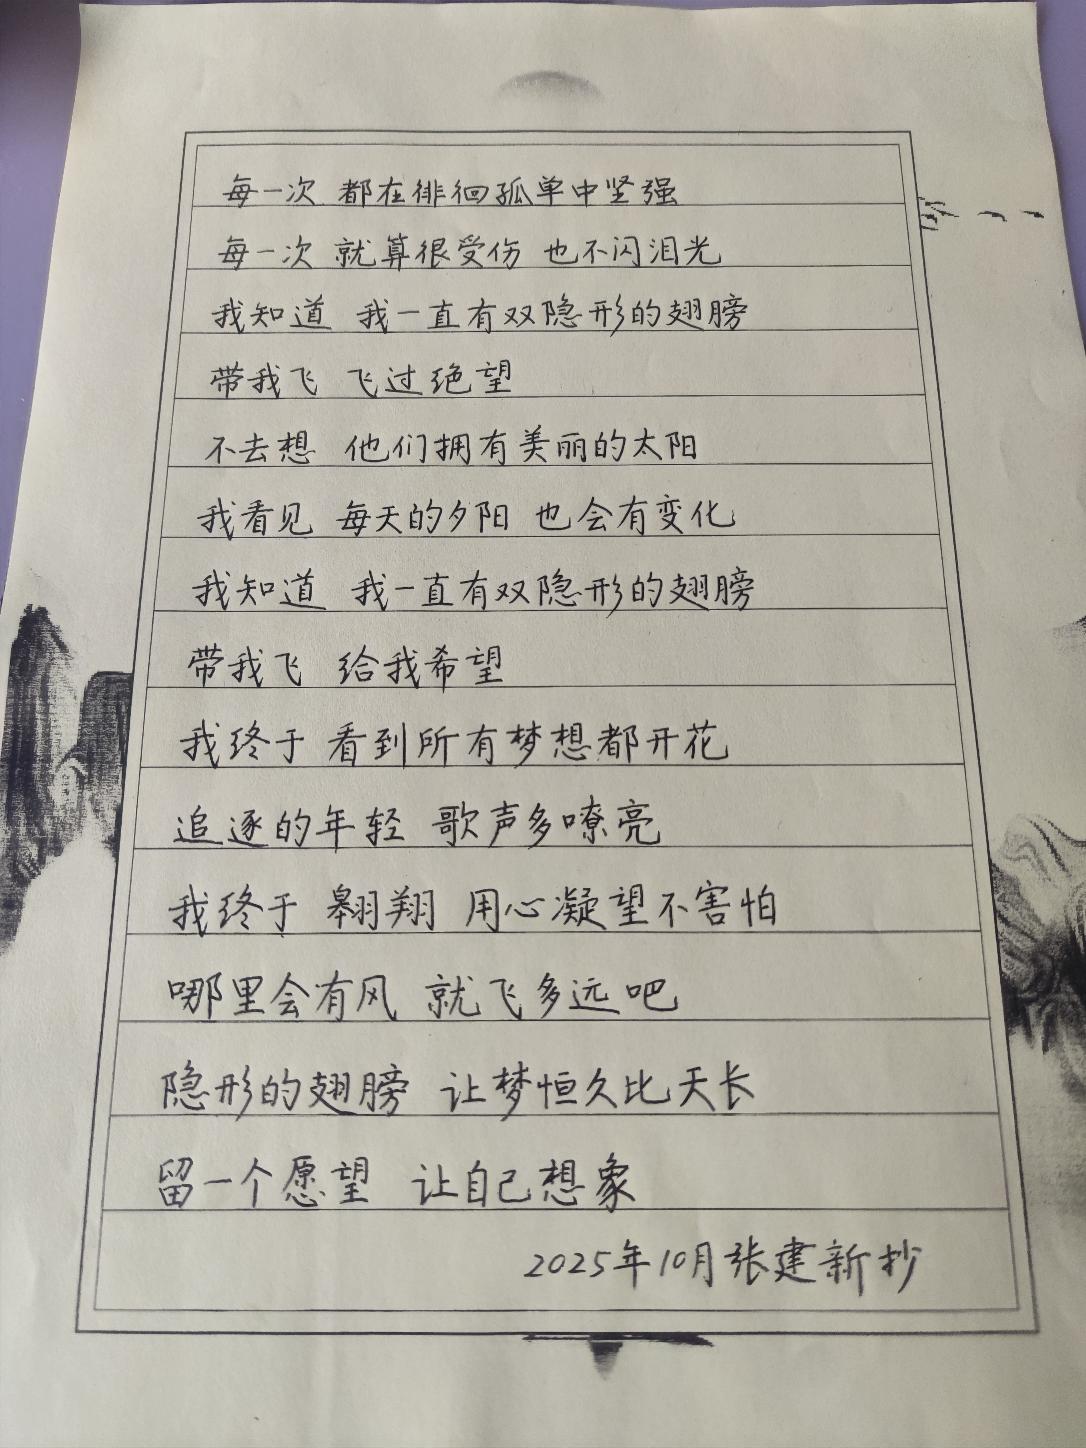 每一次 都在徘徊孤单中坚强
每一次 就算很受伤 也不闪泪光
我知道 我一直有双隐形的翅膀
带我飞 飞过绝望
不去想 他们拥有美丽的太阳
我看见 每天的夕阳 也会有变化
我知道 我一直有双隐形的翅膀
带我飞 给我希望
我终于 看到所有梦想都开花
追逐的年轻 歌声多嘹亮
我终于 翱翔 用心凝望不害怕
哪里会有风 就飞多远吧
隐形的翅膀 让梦恒久比天长
留一个愿望 让自己想象
2025年10月张建新抄